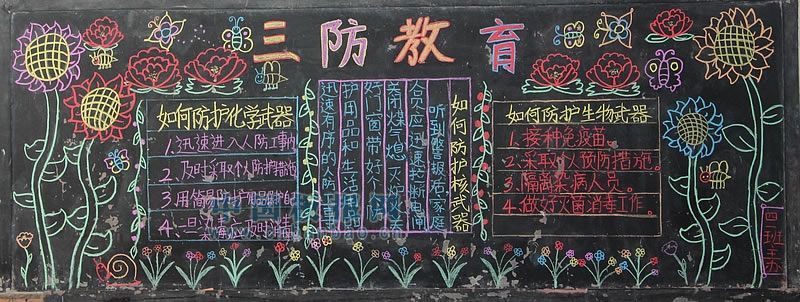 三防教育
如何防护化学武器
1.迅速进入人防工事内
2.及时采取个人防护措施
3.用简易防护用品防护
4.一旦染毒应及时消毒
如何防护核武器
听到警报后,家庭
合员应迅速拉断电闸
关闭煤气,熄灭炉火,关
好门窗,带好个人防
护用品和生活用品,
迅速有序的人防工事
如何防护生物武器
1.接种免疫苗。
2.采取个人预防措施。
3.隔离染病人员。
4.做好灭菌消毒工作。
四班主